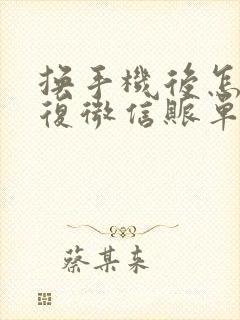 換手機後怎
復微信賬單
蔡某来